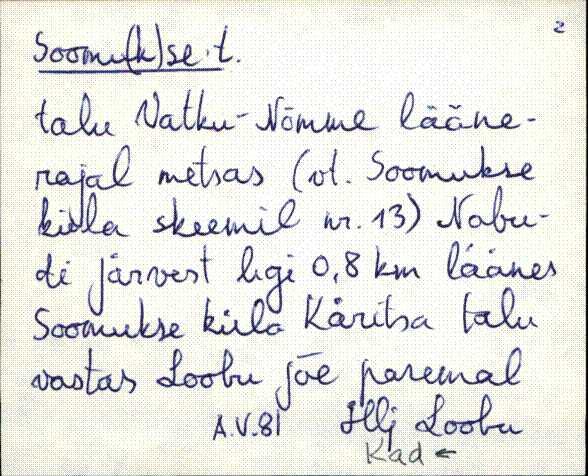 2
Soomu(k)se t.
talu Vatku-Nõmme lääne-
rajal metsas (vt. Soomukse
küla skeemil nr. 13) Nabu-
di järvest ligi 0,8 km läänes
Soomukse küla Käritsa talu
vastas Loobu jõe paremal
A.V.81 Hlj Loobu
Kad ←